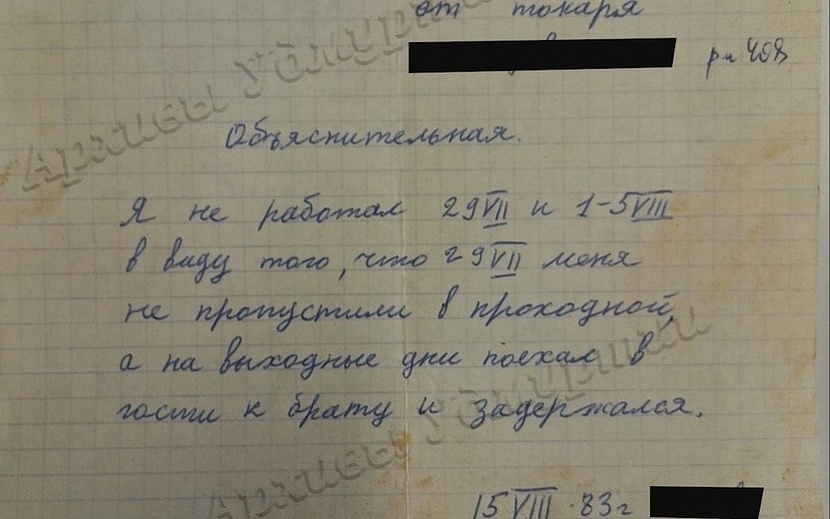 от токаря
рм 408
Объяснительная.
Я не работал 29 VII и 1-5 VIII
в виду того, что 29 VII меня
не пропустили в проходной,
а на выходные дни поехал в
гости к брату и задержался.
15 VIII 83г
Архивы Удмуртии
Архивы Удмуртии